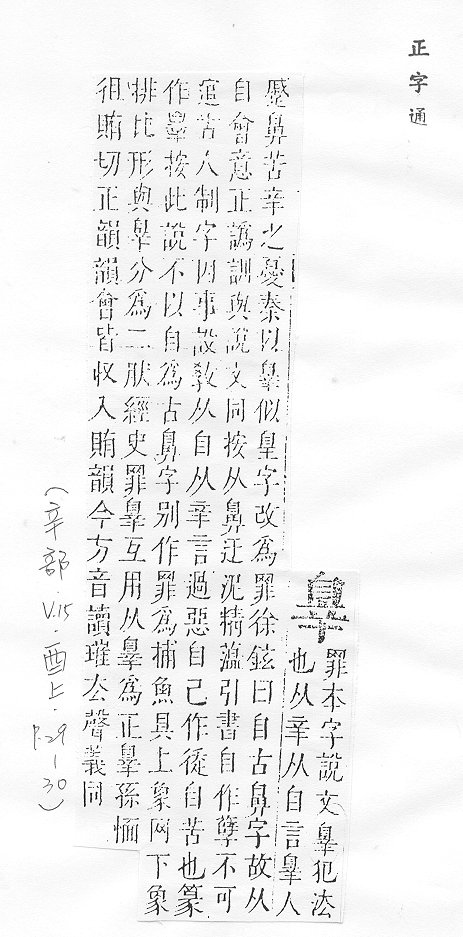 正字通
辠
罪本字說文辠犯㳒
也从辛从自言辠人
蹙鼻苦辛之憂秦以辠似皇字改爲罪徐鉉曰自古鼻字故从
自會意正譌訓與說文同按从鼻迂泥精蘊引書自作孽不可
逭古人制字因事設敎从自从辛言過惡自己作從自苦也篆
作辠按此說不以自爲古鼻字別作罪爲捕魚具上象网下象
排比形與辠分爲二狀經史罪辠互用从辠爲正辠孫愐
徂賄切正韻韻會皆収入賄韻今方音讀璀厺聲義同
(辛部·V.15·酉上·P.29-30)